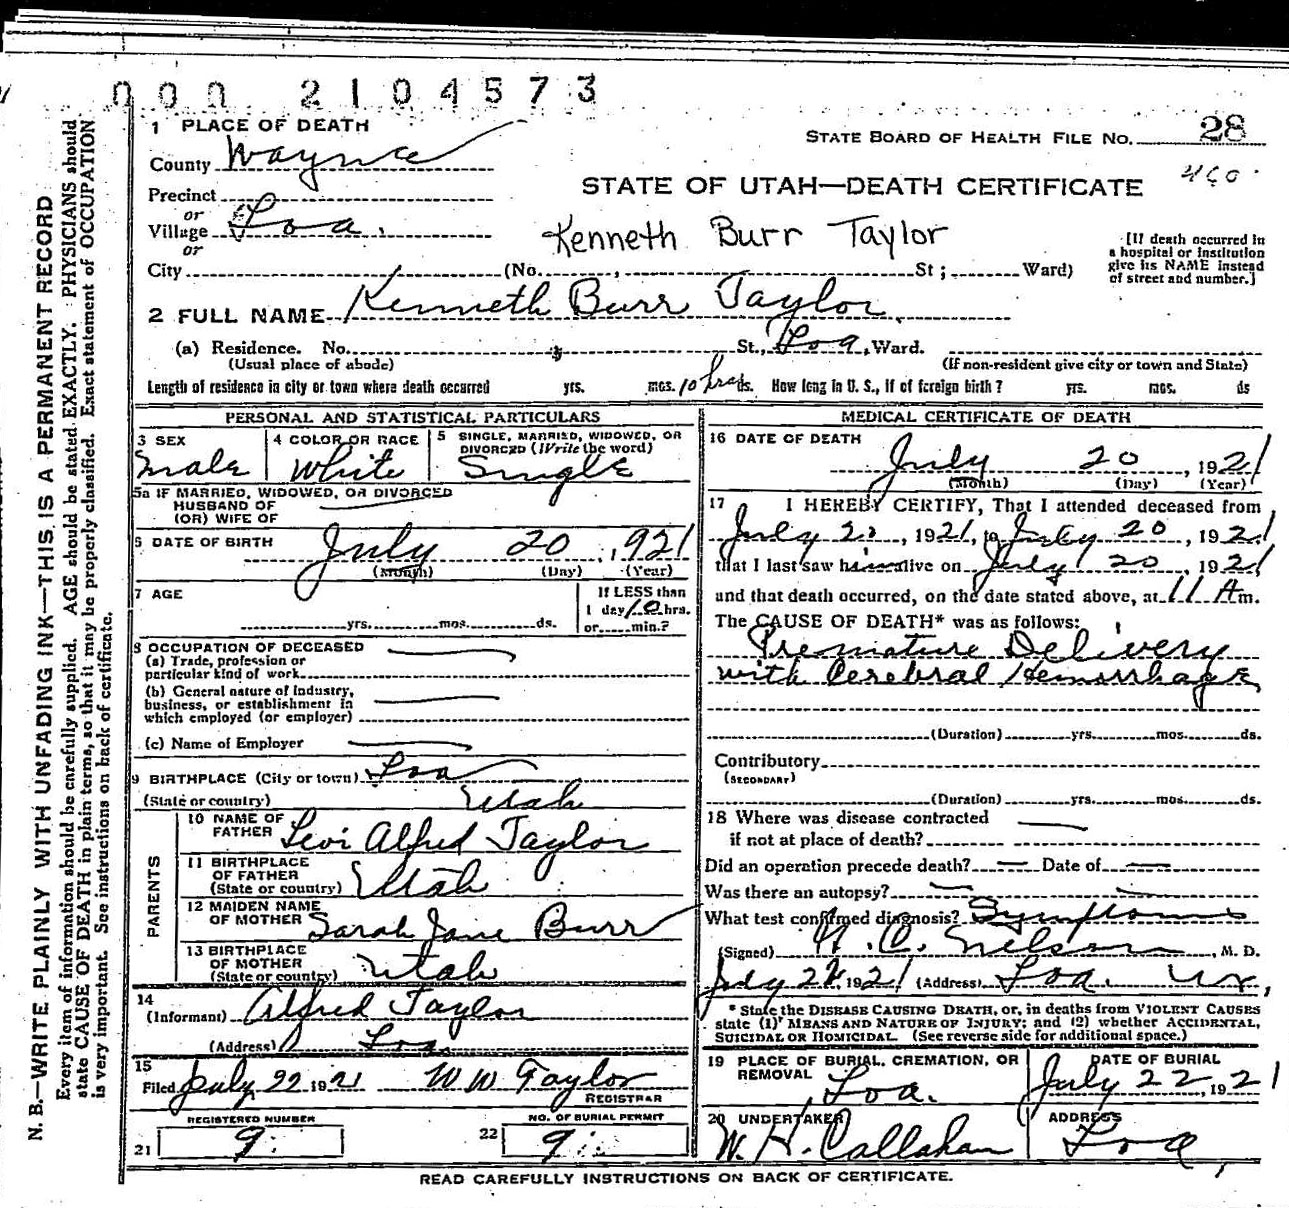 000 2104573
1 PLACE OF DEATH
STATE BOARD OF HEALTH FILE No. 28
County Wayne
STATE OF UTAH—DEATH CERTIFICATE
Precinct
or
Village Loa.
or
Kenneth Burr Taylor
[If death occurred in a hospital or institution give its NAME instead of street and number.]
City (No. , St; Ward)
2 FULL NAME Kenneth Burr Taylor
(a) Residence. No. St., Loa, Ward.
(Usual place of abode) (If non-resident give city or town and State)
Length of residence in city or town where death occurred yrs. mos. 10 hrs ds. How long in U. S., if of foreign birth? yrs. mos. ds
PERSONAL AND STATISTICAL PARTICULARS
3 SEX
Male
4 COLOR OR RACE
White
5 SINGLE, MARRIED, WIDOWED, OR DIVORCED (Write the word)
Single
5a IF MARRIED, WIDOWED, OR DIVORCED
HUSBAND OF
(OR) WIFE OF
6 DATE OF BIRTH July 20, 1921
(Month) (Day) (Year)
7 AGE
yrs. mos. ds.
If LESS than
1 day 10 hrs.
or min.?
8 OCCUPATION OF DECEASED
(a) Trade, profession or
particular kind of work
(b) General nature of Industry,
business, or establishment in
which employed (or employer)
(c) Name of Employer
9 BIRTHPLACE (City or town) Loa
(State or country) Utah
PARENTS
10 NAME OF
FATHER Levi Alfred Taylor
11 BIRTHPLACE
OF FATHER
(State or country) Utah
12 MAIDEN NAME
OF MOTHER Sarah Jane Burr
13 BIRTHPLACE
OF MOTHER
(State or country) Utah
14
(Informant) Alfred Taylor
(Address) Loa
15
Filed July 22 1921 W W Taylor
REGISTRAR
REGISTERED NUMBER
21 9
NO. OF BURIAL PERMIT
22 9
MEDICAL CERTIFICATE OF DEATH
16 DATE OF DEATH
July 20, 1921
(Month) (Day) (Year)
17 I HEREBY CERTIFY, That I attended deceased from
July 20, 1921, to July 20, 1921
that I last saw him alive on July 20, 1921
and that death occurred, on the date stated above, at 11 A m.
The CAUSE OF DEATH* was as follows:
Premature Delivery
with Cerebral Hemorrhage
(Duration) yrs. mos. ds.
Contributory
(SECONDARY)
(Duration) yrs. mos. ds.
18 Where was disease contracted
if not at place of death?
Did an operation precede death? Date of
Was there an autopsy?
What test confirmed diagnosis? Symptoms
(Signed) C. Nelson, M. D.
July 22 1921 (Address) Loa. Ut,
* State the DISEASE CAUSING DEATH, or, in deaths from VIOLENT CAUSES
state (1) MEANS AND NATURE OF INJURY; and (2) whether ACCIDENTAL,
SUICIDAL OR HOMICIDAL. (See reverse side for additional space.)
19 PLACE OF BURIAL, CREMATION, OR
REMOVAL Loa.
DATE OF BURIAL
July 22, 1921
20 UNDERTAKER
W. H. Callahan
ADDRESS
Loa,
READ CAREFULLY INSTRUCTIONS ON BACK OF CERTIFICATE.
N. B.—WRITE PLAINLY WITH UNFADING INK—THIS IS A PERMANENT RECORD
Every item of information should be carefully supplied. AGE should be stated EXACTLY. PHYSICIANS should
state CAUSE OF DEATH in plain terms, so that it may be properly classified. Exact statement of OCCUPATION
is very important. See instructions on back of certificate.